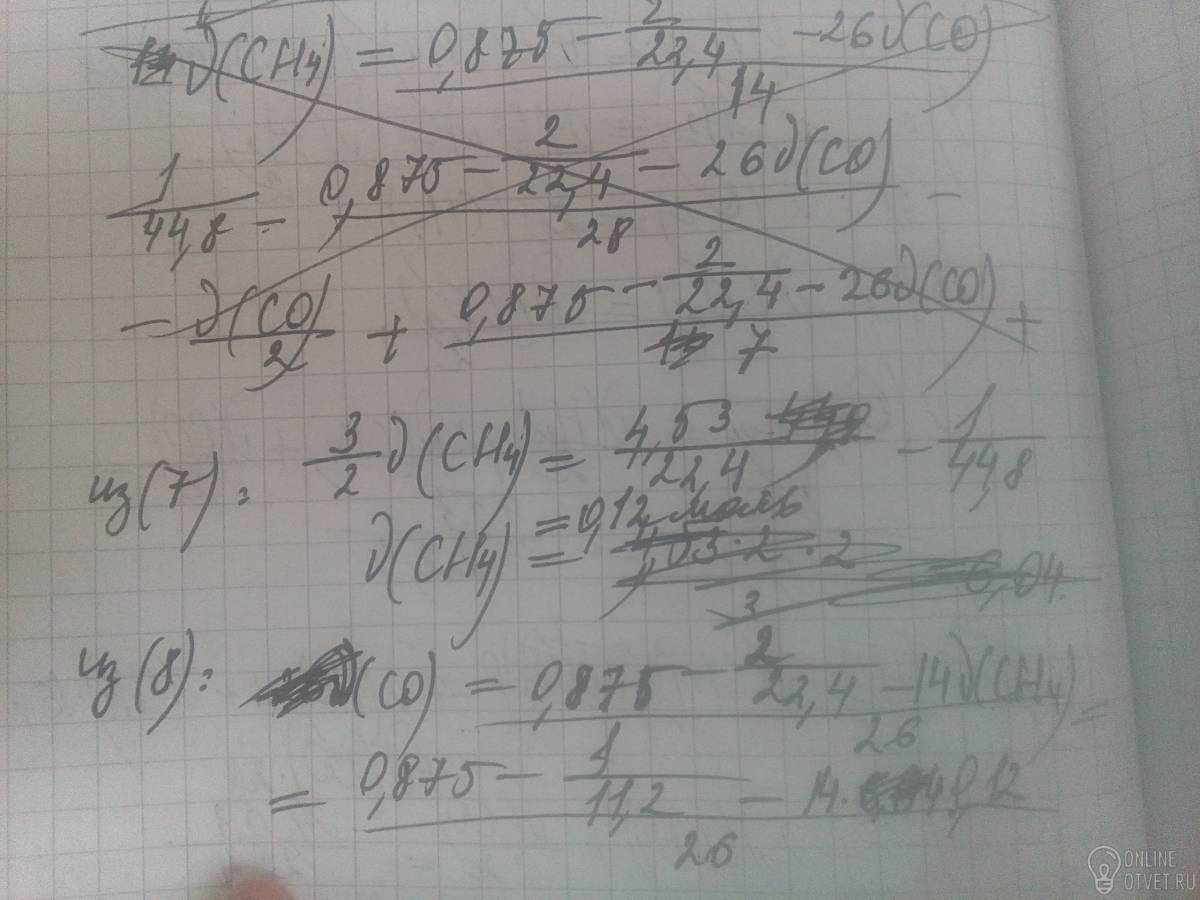 ν(CH4) = (0,875 - 2/22,4 - 26ν(CO))/14
1/44,8 = (0,875 - 2/22,4 - 26ν(CO))/28 -
- ν(CO)/2 + (0,875 - 2/22,4 - 26ν(CO))/7 +
из(7): 3/2 ν(CH4) = 4,53/22,4 - 1/44,8
ν(CH4) = 0,12 моль
из(8): ν(CO) = (0,875 - 2/22,4 - 14ν(CH4))/26 =
= (0,875 - 1/11,2 - 14·0,12)/26
ONLINE
OTVET.RU